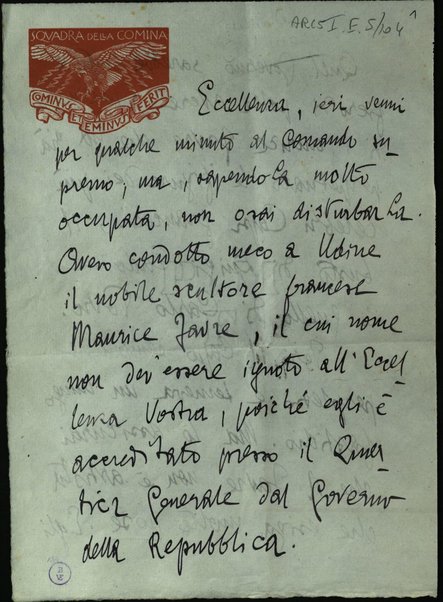 ARC5 I. E. 5/104 1
SQVADRA DELLA COMINA
COMINVS ET EMINVS FERIT
Eccellenza, ieri venni
per qualche minuto al Comando su
premo; ma, sapendoLa molto
occupata, non osai disturbarLa.
Avevo condotto meco a Udine
il nobile scultore francese
Maurice Favre, il cui nome
non dev'essere ignoto all'Eccel
lenza Vostra, poiché egli è
accreditato presso il Quar
tier Generale dal Governo
della Repubblica.